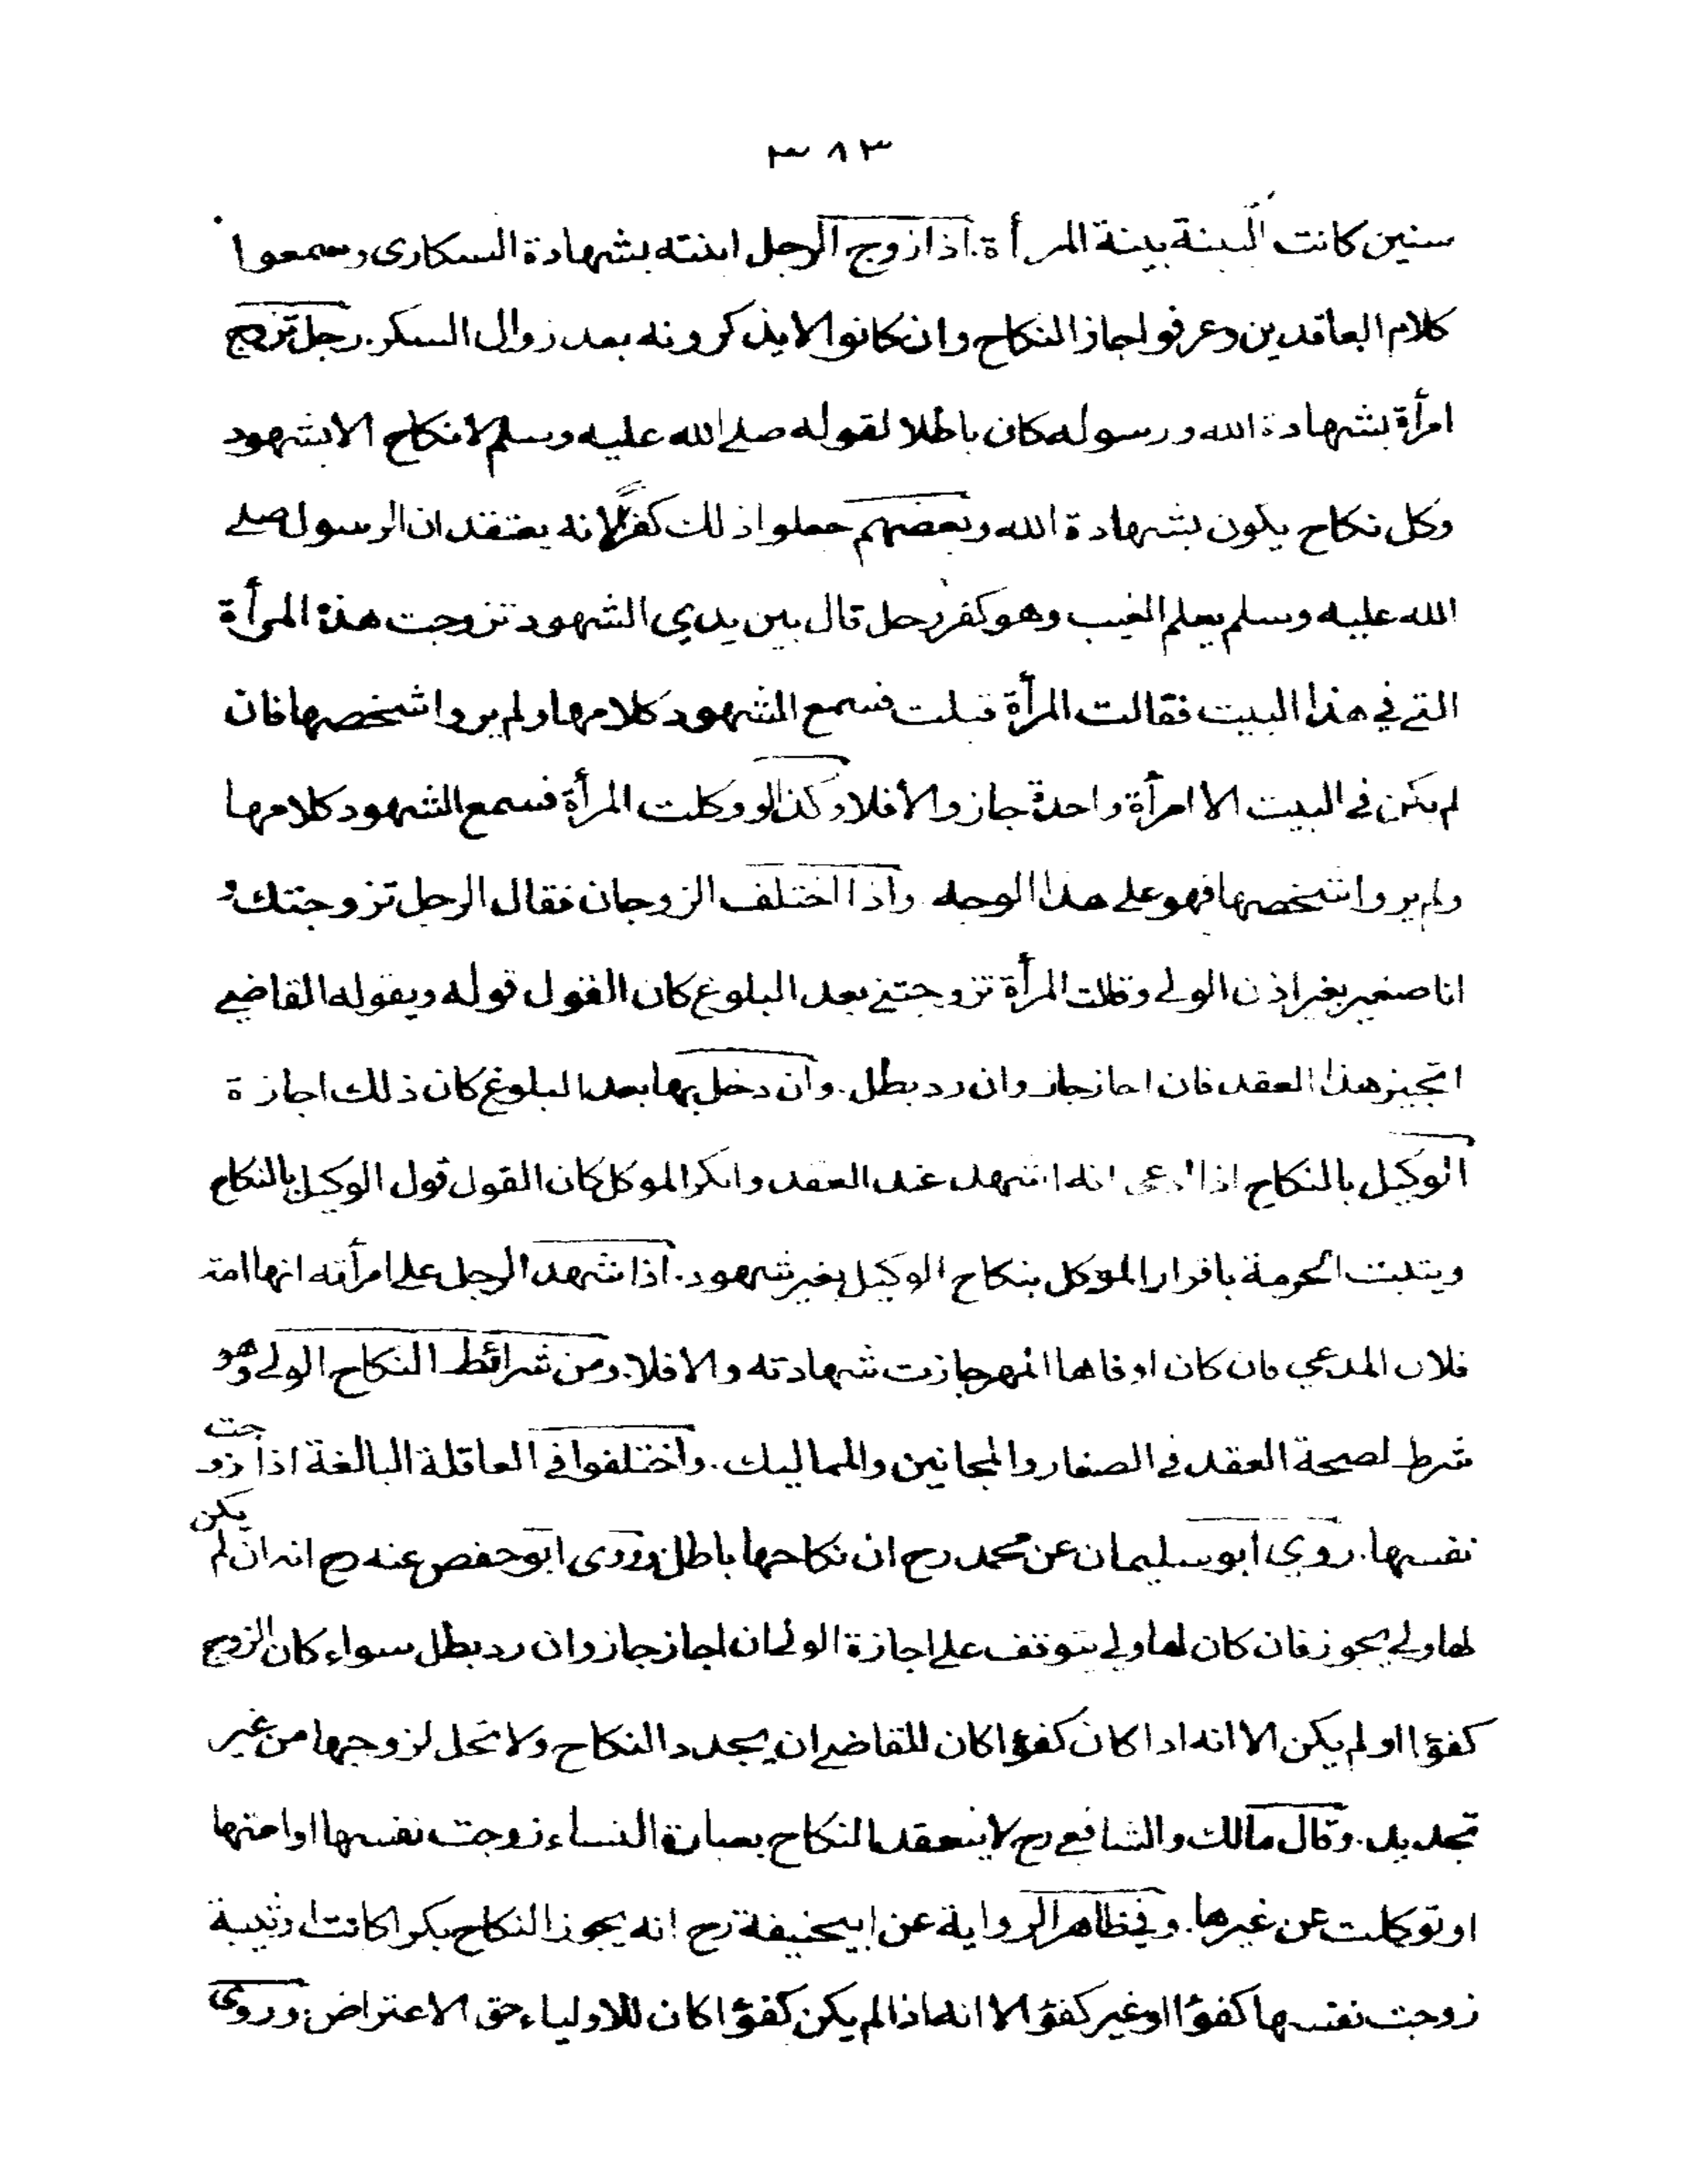 ٣٨٣
سنين كانت البينة بينة المرأة. اذا زوج الرجل ابنته بشهادة السكارى وسمعوا
كلام العاقدين وعرفوا جاز النكاح وان كانوا لا يذكرونه بعد زوال السكر. رجل تزوج
امرأة بشهادة الله ورسوله كان باطلا لقوله صلى الله عليه وسلم لا نكاح الا بشهود
وكل نكاح يكون بشهادة الله وبعضهم جعلوا ذلك كفرًا لانه يعتقد ان الرسول صلى
الله عليه وسلم يعلم الغيب وهو كفر رجل قال بين يدي الشهود تزوجت هذه المرأة
التي في هذا البيت فقالت المرأة قبلت فسمع الشهود كلامها ولم يروا شخصها فان
لم يكن في البيت الا امرأة واحدة جاز والا فلا وكذا لو وكلت المرأة فسمع الشهود كلامها
ولم يروا شخصها فهو على هذا الوجه واذا اختلف الزوجان فقال الرجل تزوجتك و
انا صغير بغير اذن الولي وقالت المرأة تزوجتني بعد البلوغ كان القول قوله ويقوله القاضي
اتجيز هذا العقد فان اجاز جاز وان رد بطل. وان دخل بها بعد البلوغ كان ذلك اجازة
الوكيل بالنكاح اذا ادعى انه اشهد عند العقد وانكر الموكل كان القول قول الوكيل بالنكاح
ويثبت الحرمة باقرار الموكل بنكاح الوكيل بغير شهود. اذا شهد الرجل على امرأته انها امة
فلان المدعي فان كان اوفاها المهر جازت شهادته والا فلا. ومن شرائط النكاح الولي وهو
شرط لصحة العقد في الصغار والمجانين والمماليك. واختلفوا في العاقلة البالغة اذا زوجت
نفسها. روى ابو سليمان عن محمد رح ان نكاحها باطل وروى ابو حفص عنه رح انه ان لم يكن
لها ولي يجوز فان كان لها ولي يتوقف على اجازة الولي ان اجاز جاز وان رد بطل سواء كان الزوج
كفؤا او لم يكن الا انه اذا كان كفؤا كان للقاضي ان يجدد النكاح ولا تحل لزوجها من غير
تجديد. وقال مالك والشافعي رح لا ينعقد النكاح بعبارة النساء زوجت نفسها او امتها
او توكلت عن غيرها. وفي ظاهر الرواية عن ابيحنيفة رح انه يجوز النكاح بكرا كانت او ثيبة
زوجت نفسها كفؤا او غير كفؤ الا انه اذا لم يكن كفؤا كان للاولياء حق الاعتراض. وروى